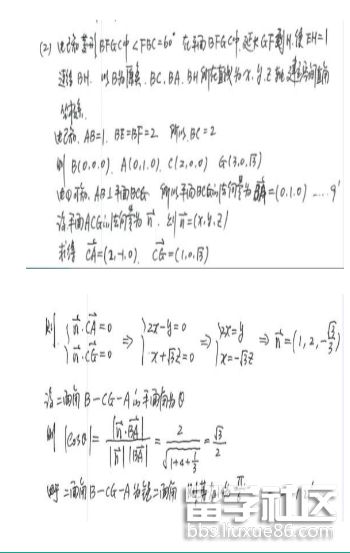 (2) 由已知菱形BFGC中∠FBC=60° 在平面BFGC中,延长GF到H,使FH=1
连结BH. 以B为原点, BC, BA, BH所在直线为x, y, z轴,建立空间直角
坐标系.
由已知, AB=1, BE=BF=2 所以 BC=2
则 B(0,0,0). A(0,1,0). C(2,0,0) G(3,0,√3)
由①可知, AB⊥平面BCG 所以平面BCG的法向量为 BA=(0,1,0) ....9'
设平面ACG的法向量为n, 则n=(x,y,z)
求得 CA=(2,-1,0). CG=(1,0,√3)
则 { n·CA=0 n·CG=0 ⇒ { 2x-y=0 x+√3z=0 ⇒ { 2x=y x=-√3z ⇒ n=(1,2,-√3/3)
设二面角B-CG-A的平面角为θ
则 |cosθ|=|n·BA|/|n||BA|=2/√(1+4+1/3)=√3/2
二面角B-CG-A为锐二面角
学习社区
bbs.liuxue86.com